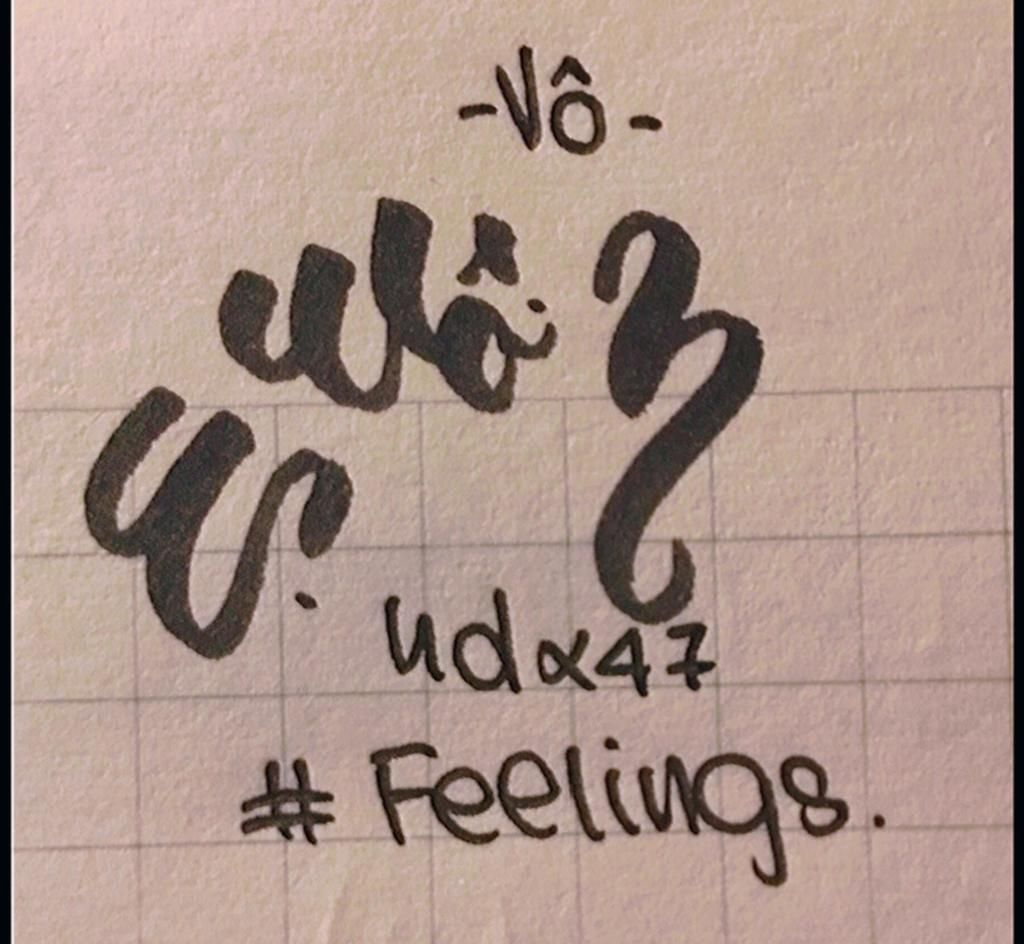 -Vô-
Vô
udα47
# Feelings.